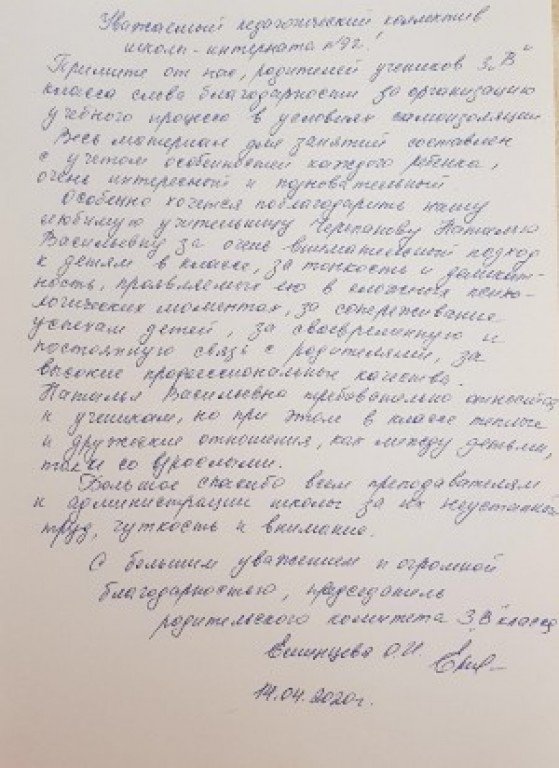 Уважаемый педагогический коллектив
школы-интерната №92,
Примите от нас, родителей учеников 3„В"
класса слова благодарности за организацию
учебного процесса в условиях самоизоляции
Весь материал для занятий составлен
с учётом особенностей каждого ребёнка,
очень интересной и познавательный
Особенно хочется поблагодарить нашу
любимую учительницу Черпакову Наталью
Васильевну за очень внимательный подход
к детям в классе, за тонкость и деликат-
ность, проявляемые ею в сложных психо-
логических моментах, за сопереживание
успехам детей, за своевременную и
постоянную связь с родителями, за
высокие профессиональные качества.
Наталья Васильевна требовательно относится
к ученикам, но при этом в классе теплые
и дружеские отношения, как между детьми,
так и со взрослыми.
Большое спасибо всем преподавателям
и администрации школы за их неустанный
труд, чуткость и внимание.
С большим уважением и огромной
благодарностью, председатель
родительского комитета 3„В" класса
О.И.
14.04.2020г.